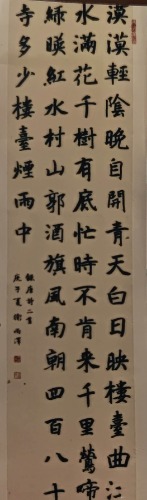 漠漠輕陰晚自開青天白日映樓臺曲江
水滿花千樹有底忙時不肯来千里鶯啼
綠暎紅水村山郭酒旗風南朝四百八十
寺多少樓臺煙雨中
錄唐詩二首
庚子夏徐雨澤